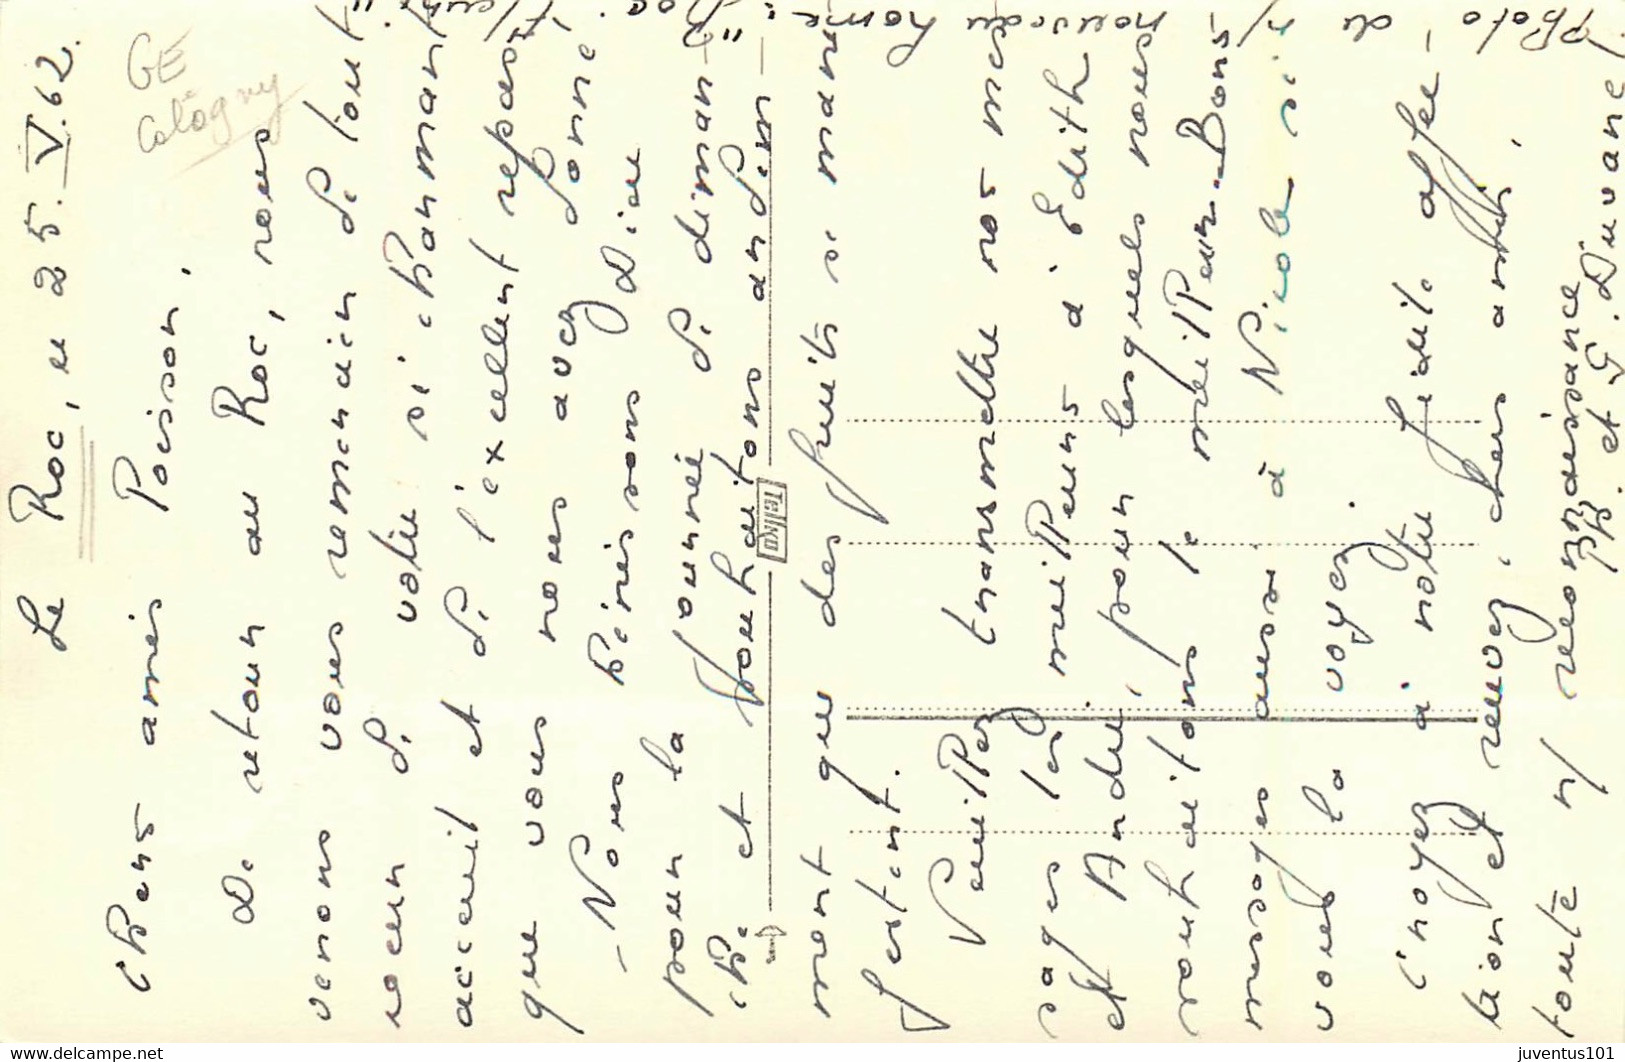 Le Roc, le 25.V.62.
GE
Cologny
Chers amis Poisson,
De retour au Roc, nous
venons vous remercier de tout
coeur de votre si charmant
accueil et de l'excellent repas
que vous nous avez donné
- Nous bénissons Dieu
pour la journée de diman-
che et souhaitons ardem-
ment que des fruits se mani-
festent.
Veuillez transmettre nos mes-
sages les meilleurs à Edith
et André, pour lesquels nous
souhaitons le meilleur. Bons
messages aussi à Nicole si
vous la voyez.
Croyez à notre fidèle affec-
tion et recevez, chers amis,
toute n/ reconnaissance
Ph. et G. Duvanel
Photo - du n/ nouveau home "Roc fleuri"
Tellko
www.delcampe.net
juventus101